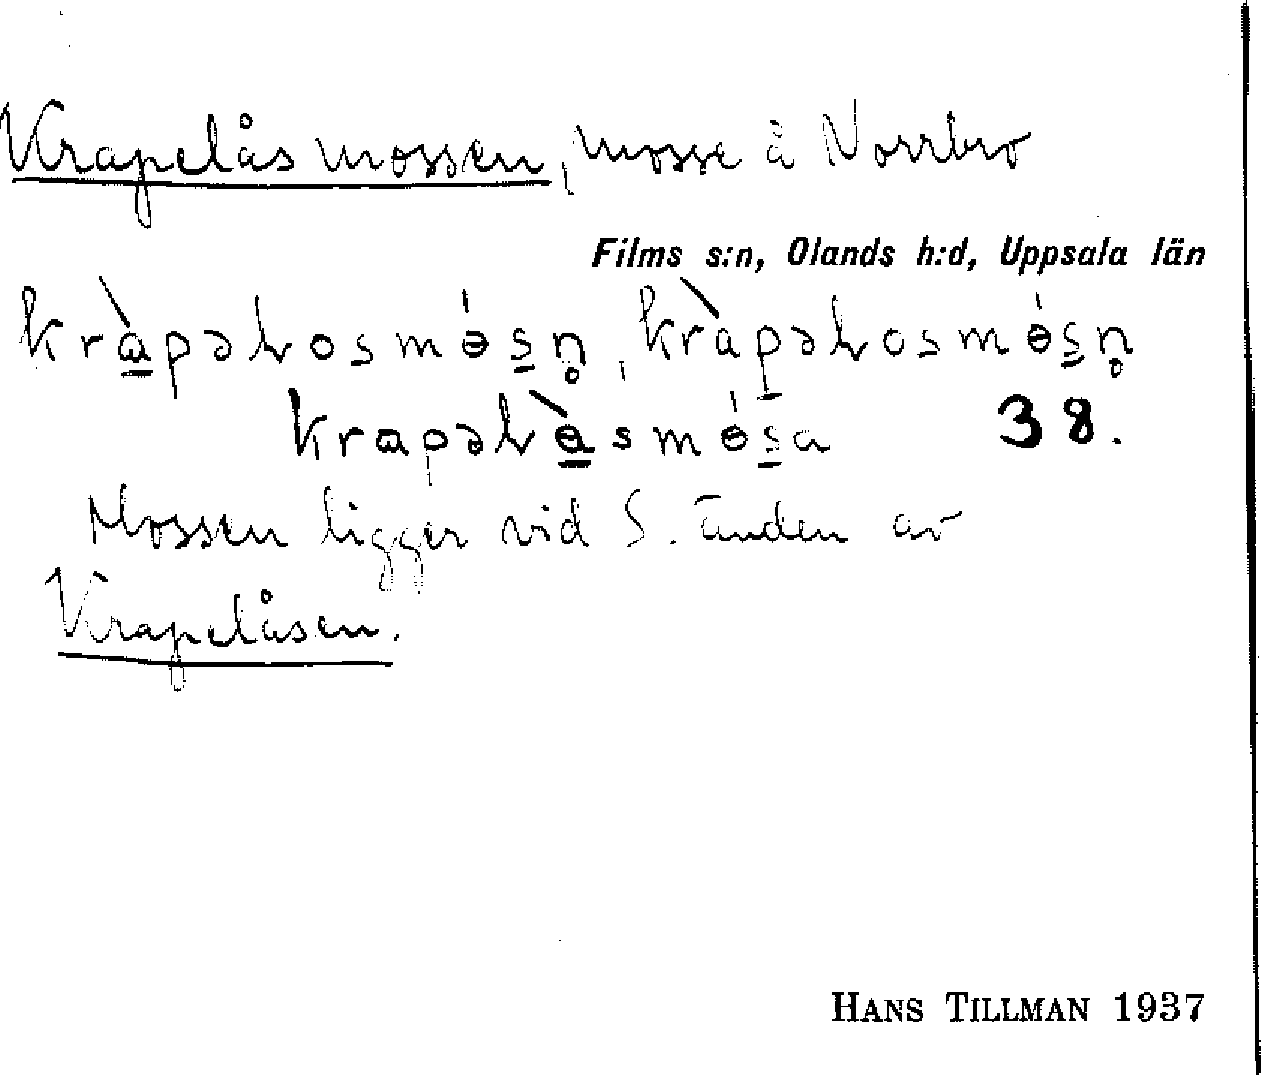 Krapelåsmossen, mosse å Norrbro
Films s:n, Olands h:d, Uppsala län
38.
Mossen ligger vid S. änden av
Krapelåsen.
HANS TILLMAN 1937